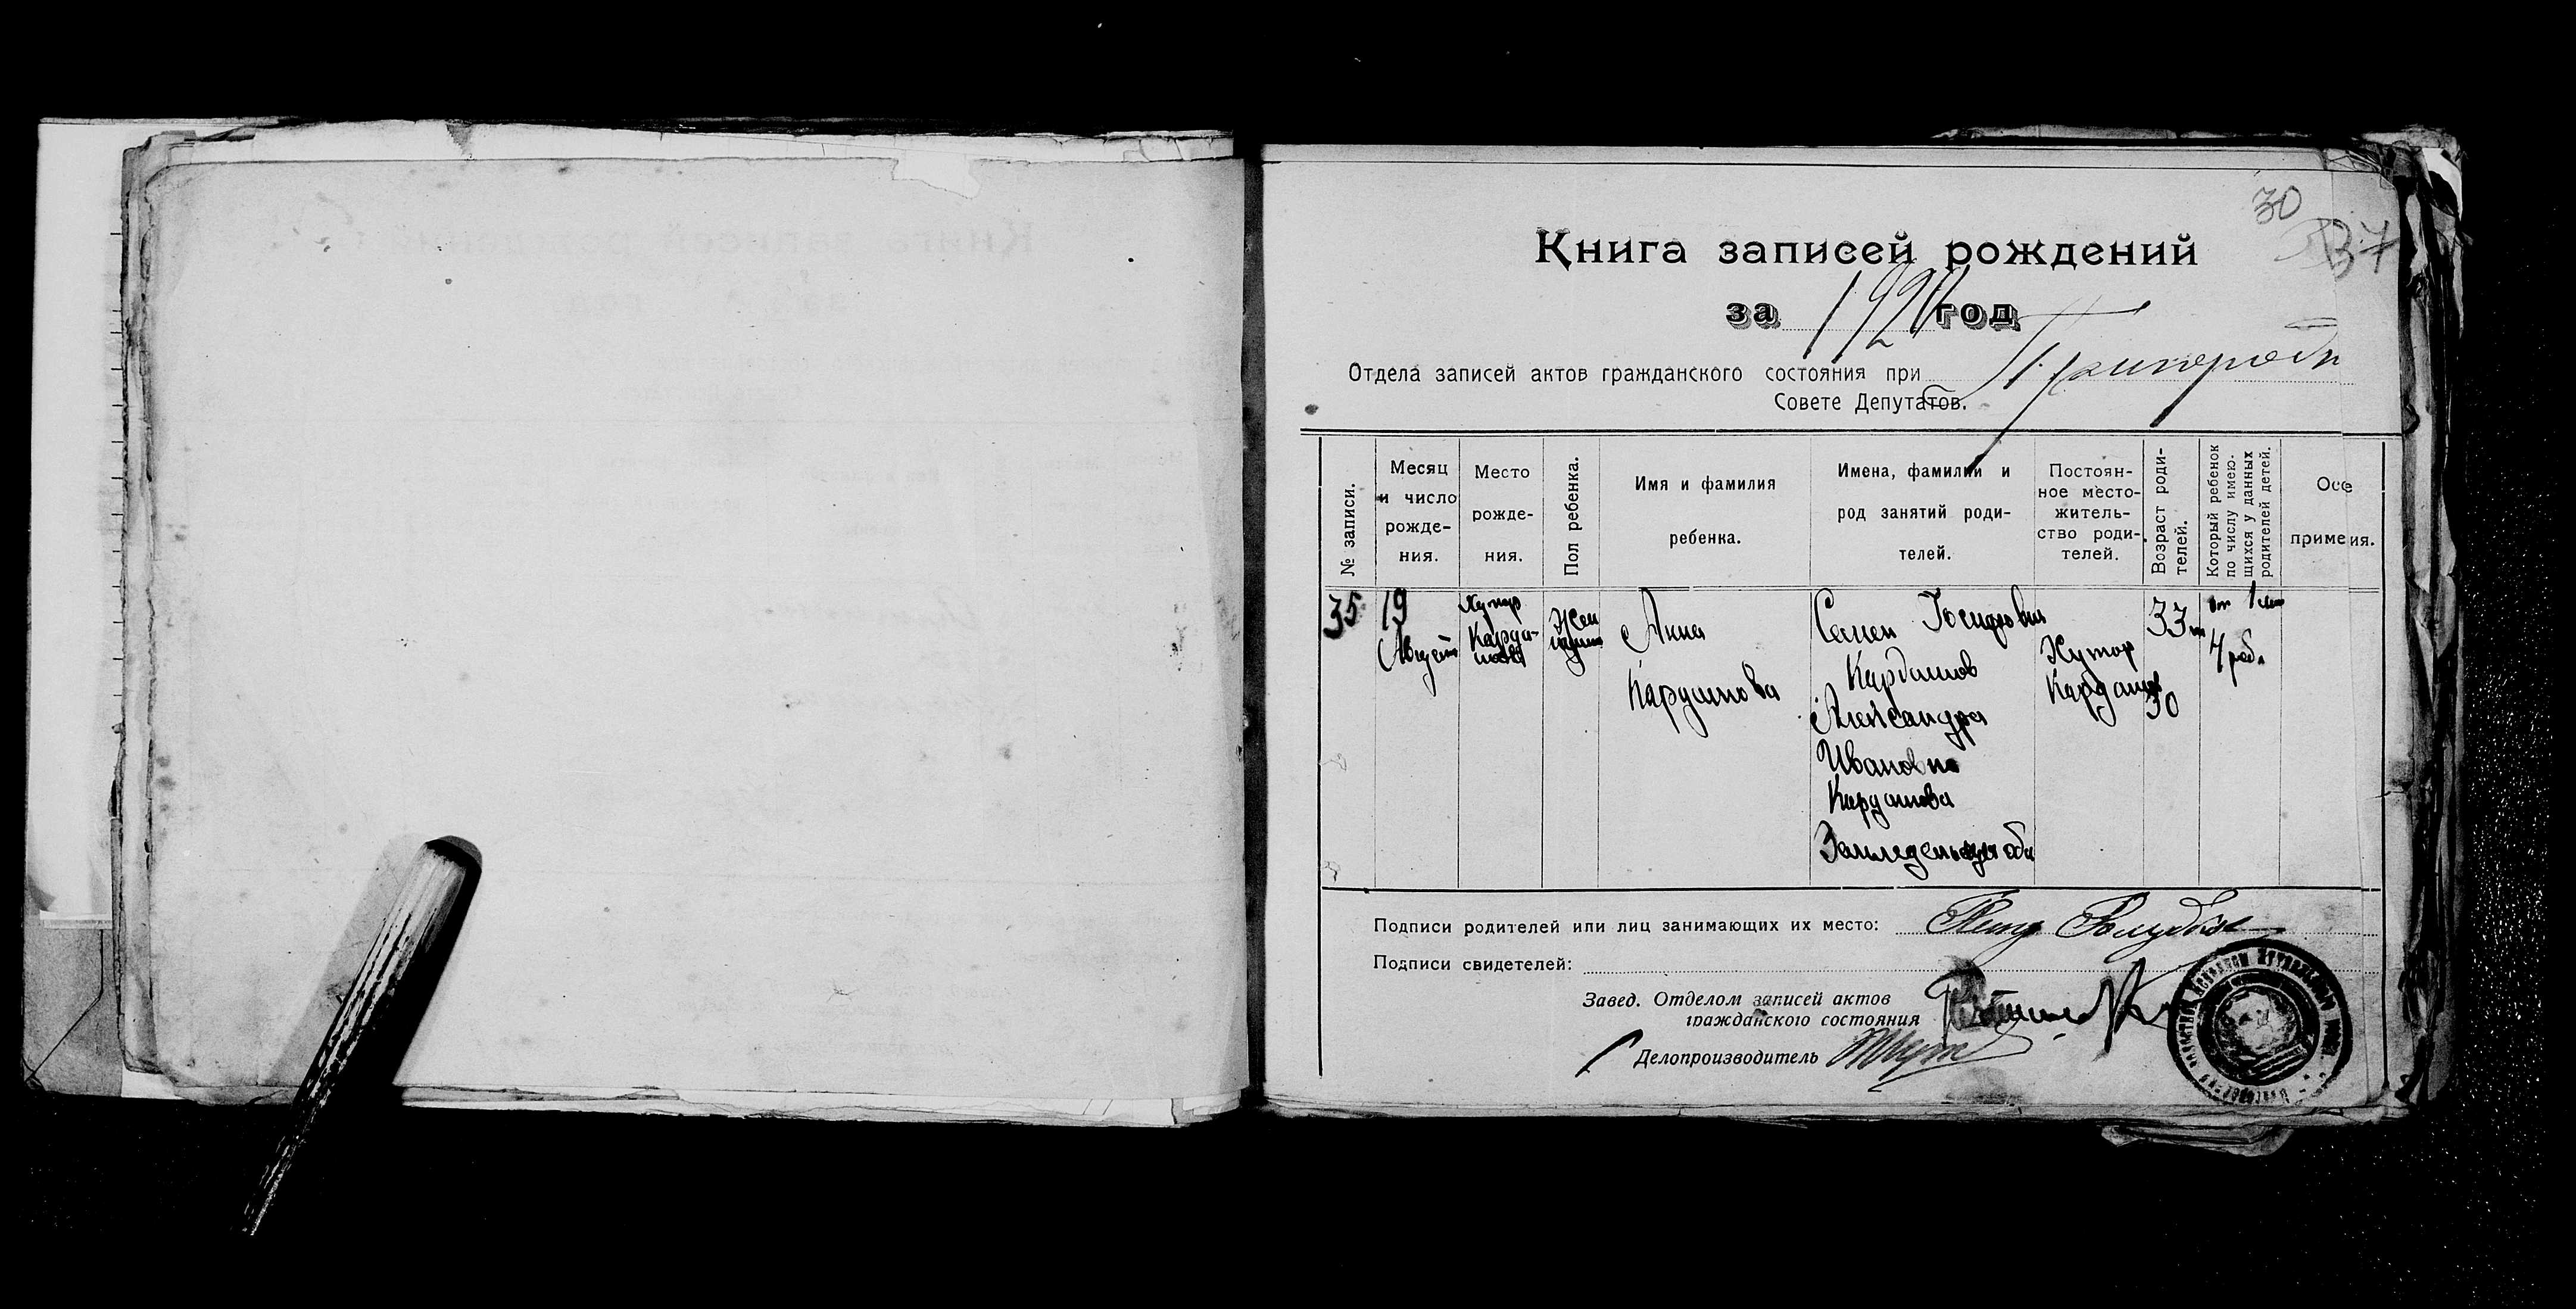 30
37
Книга записей рождений
за 1920 год
Отдела записей актов гражданского состояния при
Совете Депутатов.
№ записи.
Месяц
и число
рожде-
ния.
Место
рожде-
ния.
Пол ребенка.
Имя и фамилия
ребенка.
Имена, фамилии и
род занятий роди-
телей.
Постоян-
ное место-
житель-
ство роди-
телей.
Возраст роди-
телей.
Который ребенок
по числу имею-
щихся у данных
родителей детей.
Осо
примеия.
35
19
Август
Хутор
Карда-
шова
Жен
Анна
Кардашова
Семен
Кардашов
Александра
Ивановна
Кардашова
оба
Хутор
Кардашов
33
30
от
4 реб.
Подписи родителей или лиц занимающих их место: Петр
Подписи свидетелей:
Завед. Отделом записей актов
гражданского состояния
Делопроизводитель